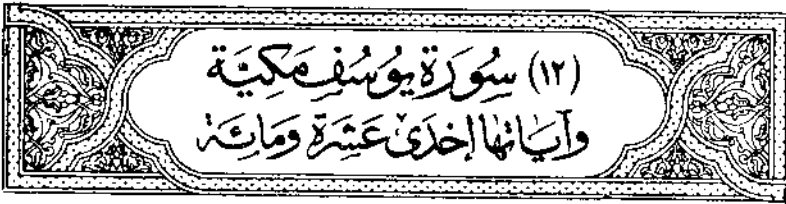 (١٢) سُورَة يوسُف مَكيَّة
وآياتها إحْدَى عَشرَة وَمِائة